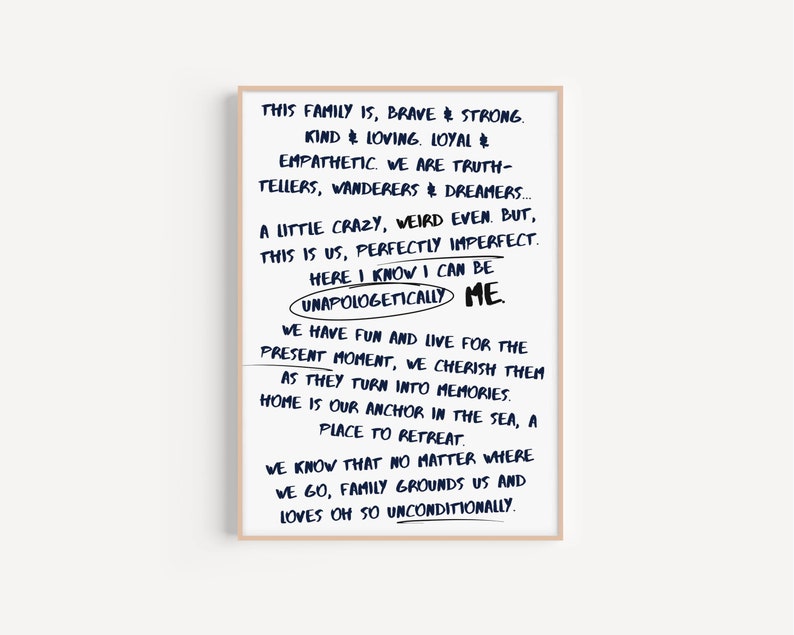 THIS FAMILY IS, BRAVE & STRONG.
KIND & LOVING. LOYAL &
EMPATHETIC. WE ARE TRUTH-
TELLERS, WANDERERS & DREAMERS...
A LITTLE CRAZY, WEIRD EVEN. BUT,
THIS IS US, PERFECTLY IMPERFECT.
HERE I KNOW I CAN BE
UNAPOLOGETICALLY ME.
WE HAVE FUN AND LIVE FOR THE
PRESENT MOMENT, WE CHERISH THEM
AS THEY TURN INTO MEMORIES.
HOME IS OUR ANCHOR IN THE SEA, A
PLACE TO RETREAT.
WE KNOW THAT NO MATTER WHERE
WE GO, FAMILY GROUNDS US AND
LOVES OH SO UNCONDITIONALLY.